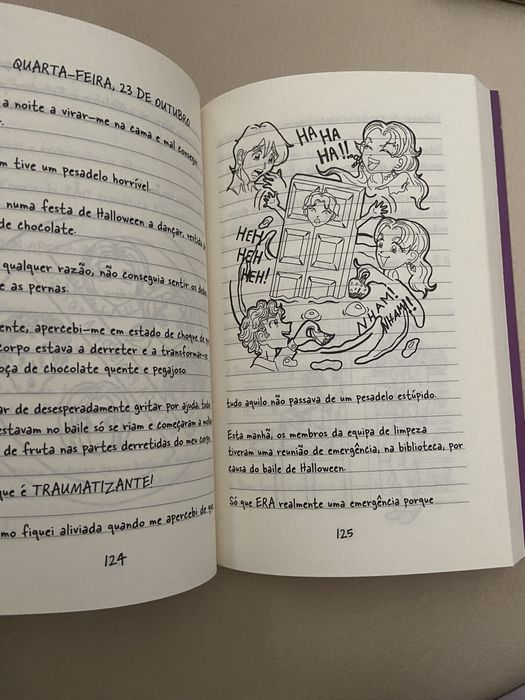 QUARTA-FEIRA, 23 DE OUTUBRO
a noite a virar-me na cama e mal consegui
tive um pesadelo horrível.
numa festa de Halloween a dançar, vestida
de chocolate.
qualquer razão, não conseguia sentir os
e as pernas.
apercebi-me em estado de choque de que
corpo estava a derreter e a transformar-se
de chocolate quente e pegajoso.
de desesperadamente gritar por ajuda,
estavam no baile só se riam e começaram a
de fruta nas partes derretidas do meu corpo.
que é TRAUMATIZANTE!
fiquei aliviada quando me apercebi de que
124
HA HA
HA!!
HEH
HEH
HEH!
NHAM!
NHAM!!
tudo aquilo não passava de um pesadelo estúpido.
Esta manhã, os membros da equipa de limpeza
tiveram uma reunião de emergência, na biblioteca, por
causa do baile de Halloween.
Só que ERA realmente uma emergência porque
125